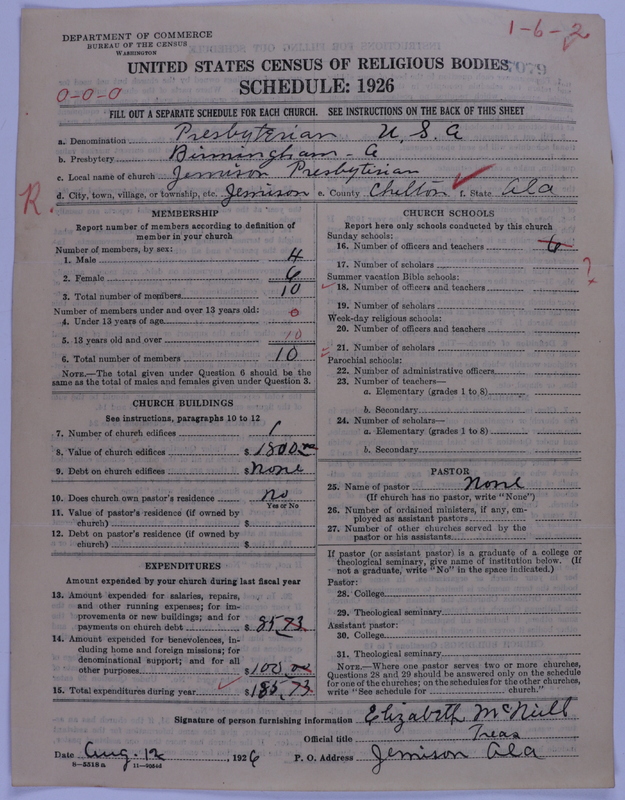 DEPARTMENT OF COMMERCE
BUREAU OF THE CENSUS
WASHINGTON
1-6-2
UNITED STATES CENSUS OF RELIGIOUS BODIES
SCHEDULE: 1926
0-0-0
FILL OUT A SEPARATE SCHEDULE FOR EACH CHURCH. SEE INSTRUCTIONS ON THE BACK OF THIS SHEET
a. Denomination Presbyterian U, S, A
b. Presbytery Birmingham - A
c. Local name of church Jemison Presbyterian
d. City, town, village, or township, etc. Jemison e. County Chilton f. State Ala
R.
MEMBERSHIP
Report number of members according to definition of
member in your church
Number of members, by sex:
1. Male 4
2. Female 6
3. Total number of members 10
Number of members under and over 13 years old:
4. Under 13 years of age 0
5. 13 years old and over 10
6. Total number of members 10
NOTE.—The total given under Question 6 should be the
same as the total of males and females given under Question 3.
CHURCH BUILDINGS
See instructions, paragraphs 10 to 12
7. Number of church edifices 1
8. Value of church edifices $ 1800.00
9. Debt on church edifices $ None
10. Does church own pastor's residence no
Yes or No
11. Value of pastor's residence (if owned by
church) $
12. Debt on pastor's residence (if owned by
church) $
EXPENDITURES
Amount expended by your church during last fiscal year
13. Amount expended for salaries, repairs,
and other running expenses; for im-
provements or new buildings; and for
payments on church debt $ 85.73
14. Amount expended for benevolences, in-
cluding home and foreign missions; for
denominational support; and for all
other purposes $ 100.00
15. Total expenditures during year $ 185.73
CHURCH SCHOOLS
Report here only schools conducted by this church
Sunday schools:
16. Number of officers and teachers 6
17. Number of scholars
?
Summer vacation Bible schools:
18. Number of officers and teachers
19. Number of scholars
Week-day religious schools:
20. Number of officers and teachers
21. Number of scholars
Parochial schools:
22. Number of administrative officers
23. Number of teachers—
a. Elementary (grades 1 to 8)
b. Secondary
24. Number of scholars—
a. Elementary (grades 1 to 8)
b. Secondary
PASTOR
25. Name of pastor None
(If church has no pastor, write "None")
26. Number of ordained ministers, if any, em-
ployed as assistant pastors
27. Number of other churches served by the
pastor or his assistants
If pastor (or assistant pastor) is a graduate of a college or
theological seminary, give name of institution below. (If
not a graduate, write "No" in the space indicated.)
Pastor:
28. College
29. Theological seminary
Assistant pastor:
30. College
31. Theological seminary
NOTE.—Where one pastor serves two or more churches,
Questions 28 and 29 should be answered only on the schedule
for one of the churches; on the schedules for the other churches,
write "See schedule for church."
Signature of person furnishing information Elizabeth McNeill
Official title Treas
Date Aug. 12, 1926 P. O. Address Jemison Ala
8-5518a